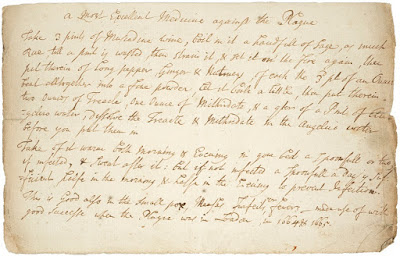 a Most Excellent Medicine against the Plague
Take 3 pints of Muskadine wine, boil in it a handfull of Sage, as much
Rue till a pint is wasted, then strain it, & set it over the fire again, then
put therein of Long pepper Ginger & Nutmeg of each the 3d pt of an Ounce
beat alltogether into a fine powder, let it boil a little, then put therein
two Ounces of Treacle, one Ounce of Mithridate, & a qr of a Pint of
Angelica water, Dissolve the Treacle & Mithridate in the Angelica water
before you put them in
Take of it warm both Morning & Evening in your bed a Spoonfull or two
if infected, & Sweat after it. but if not infected a Spoonfull a day is
halfe in the morning & halfe in the Evening to prevent Infection.
This is Good also in the Small pox, Measles, Fevers, made use of with
good Success when the Plague was in London, in 1664 & 1665